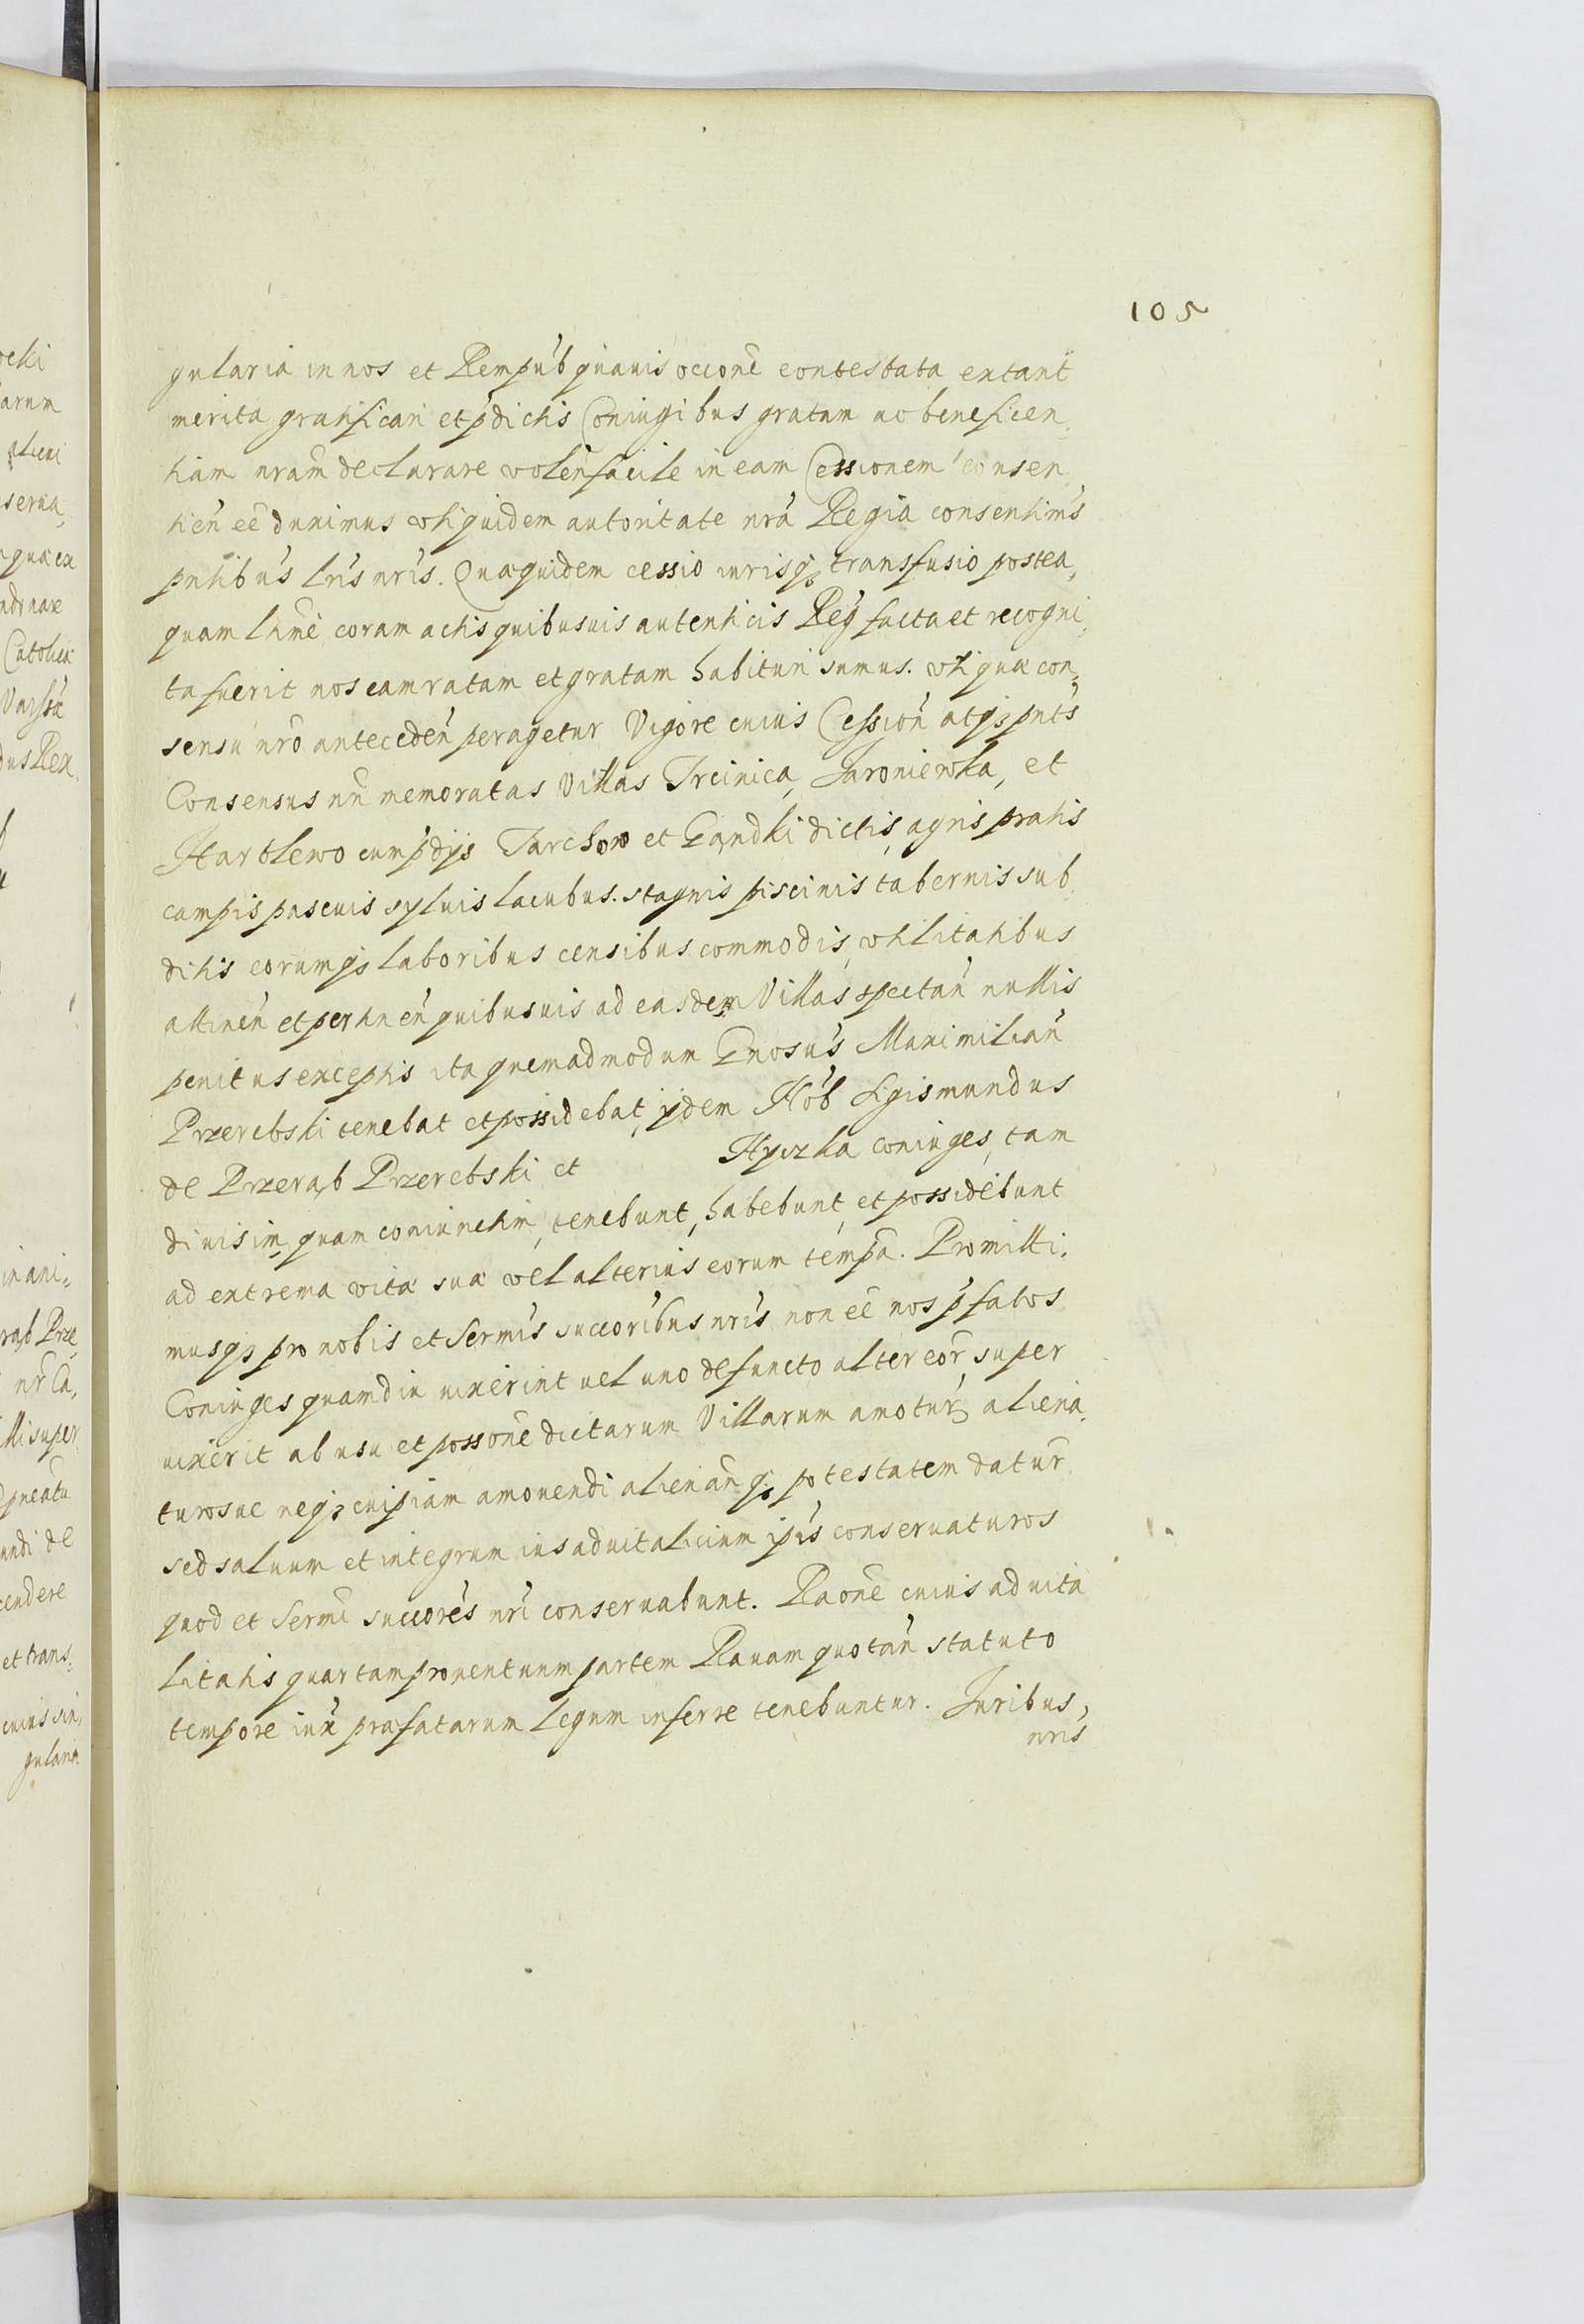 105
gularia in nos et Rempúb quauis occione contestata extant
merita gratificari et pdictis Coniugibus gratam ac beneficen,
tiam nram declarare volen facile in eam Cessionem consen,
tien ee duximus vti quidem autoritate nra Regia consentimus
pntibus lris nris. Quaquidem cessio iurisq transfusio postea,
quam ltime coram actis quibusuis autenticis Reg facta et recogni,
ta fuerit nos eam ratam et gratam habituri sumus. vti quæ con,
sensu nro anteceden peragetur Vigore cuius Cession atq pntis
Consensus nri memoratas Villas Trcinica, Jaroniewka, et
Hartlewo cum pdijs Tarchow et Gandki dictis, agris pratis
campis pascuis syluis lacubus. stagnis piscinis tabernis sub,
ditis eorumq laboribus censibus commodis, vtilitatibus
attinen et pertinen quibusuis ad easdem Villas spectan nullis
penitus exceptis ita quemadmodum Gnosus Maximilian
Przerebski tenebat et possidebat, ijdem Nob Sigismundus
de Przerąb Przerebski et Hyczka coniuges, tam
diuisim, quam coniunctim, tenebunt, habebunt, et possidebunt
ad extrema vitæ suæ vel alterius eorum tempa. Promitti,
musq pro nobis et Sermis succoribus nris non ee nos pfatos
Coniuges quamdiu uixerint uel uno defuncto alter eor super
uixerit ab usu et possone dictarum Villarum amotur, aliena,
turosue neq cuipiam amouendi alienan q potestatem datur
sed saluum et integrum ius aduitalicium ipis conseruaturos
quod et Sermi succores nri conseruabunt. Raone cuius aduita
litatis quartam prouentuum partem Rauam quotan statuto
tempore iux præfatarum legum inferre tenebuntur. Juribus,
nris
ocki
arum
alicui
serua,
quæ ex
Catolica
dus Rex
inani,
rąb Prze,
nr Ca,
illi super
undi de
cendere
et trans,
cuius sin,
gularia